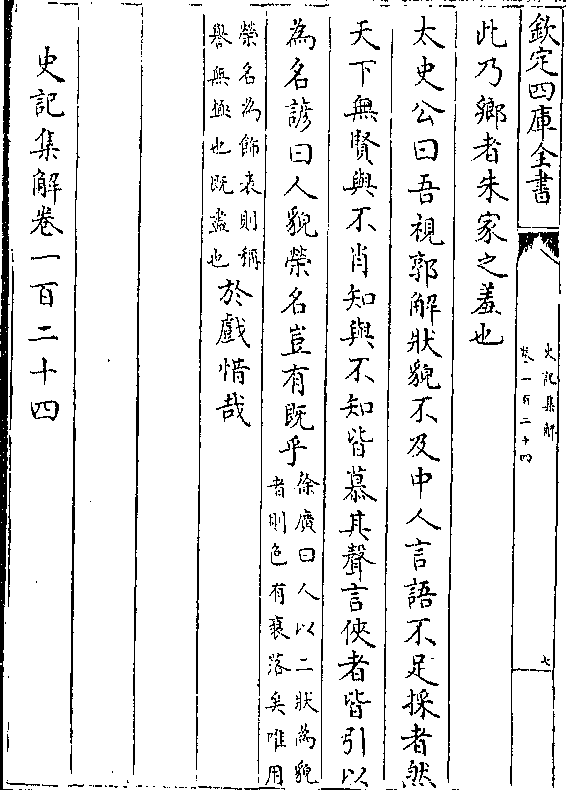 欽定四庫全書
史記集解
卷一百二十四
七
此乃鄉者朱家之羞也
太史公曰吾視郭解狀貌不及中人言語不足採者然
天下無賢與不肖知與不知皆慕其聲言俠者皆引以
為名諺曰人貌榮名豈有既乎
徐廣曰人以二狀為貌
者則色有衰落矣唯用
榮名為飾表則稱
譽無極也既盡也
於戲惜哉
史記集解卷一百二十四